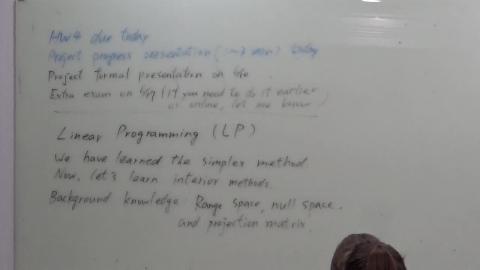 HW4 due today
Project progress presentation ( min) today
Project formal presentation on
Extra exam on (If you need to do it earlier
or online, let me know)
Linear Programming (LP)
We have learned the simplex method
Now, let's learn interior methods.
Background knowledge: Range space, null space,
and projection matrix.